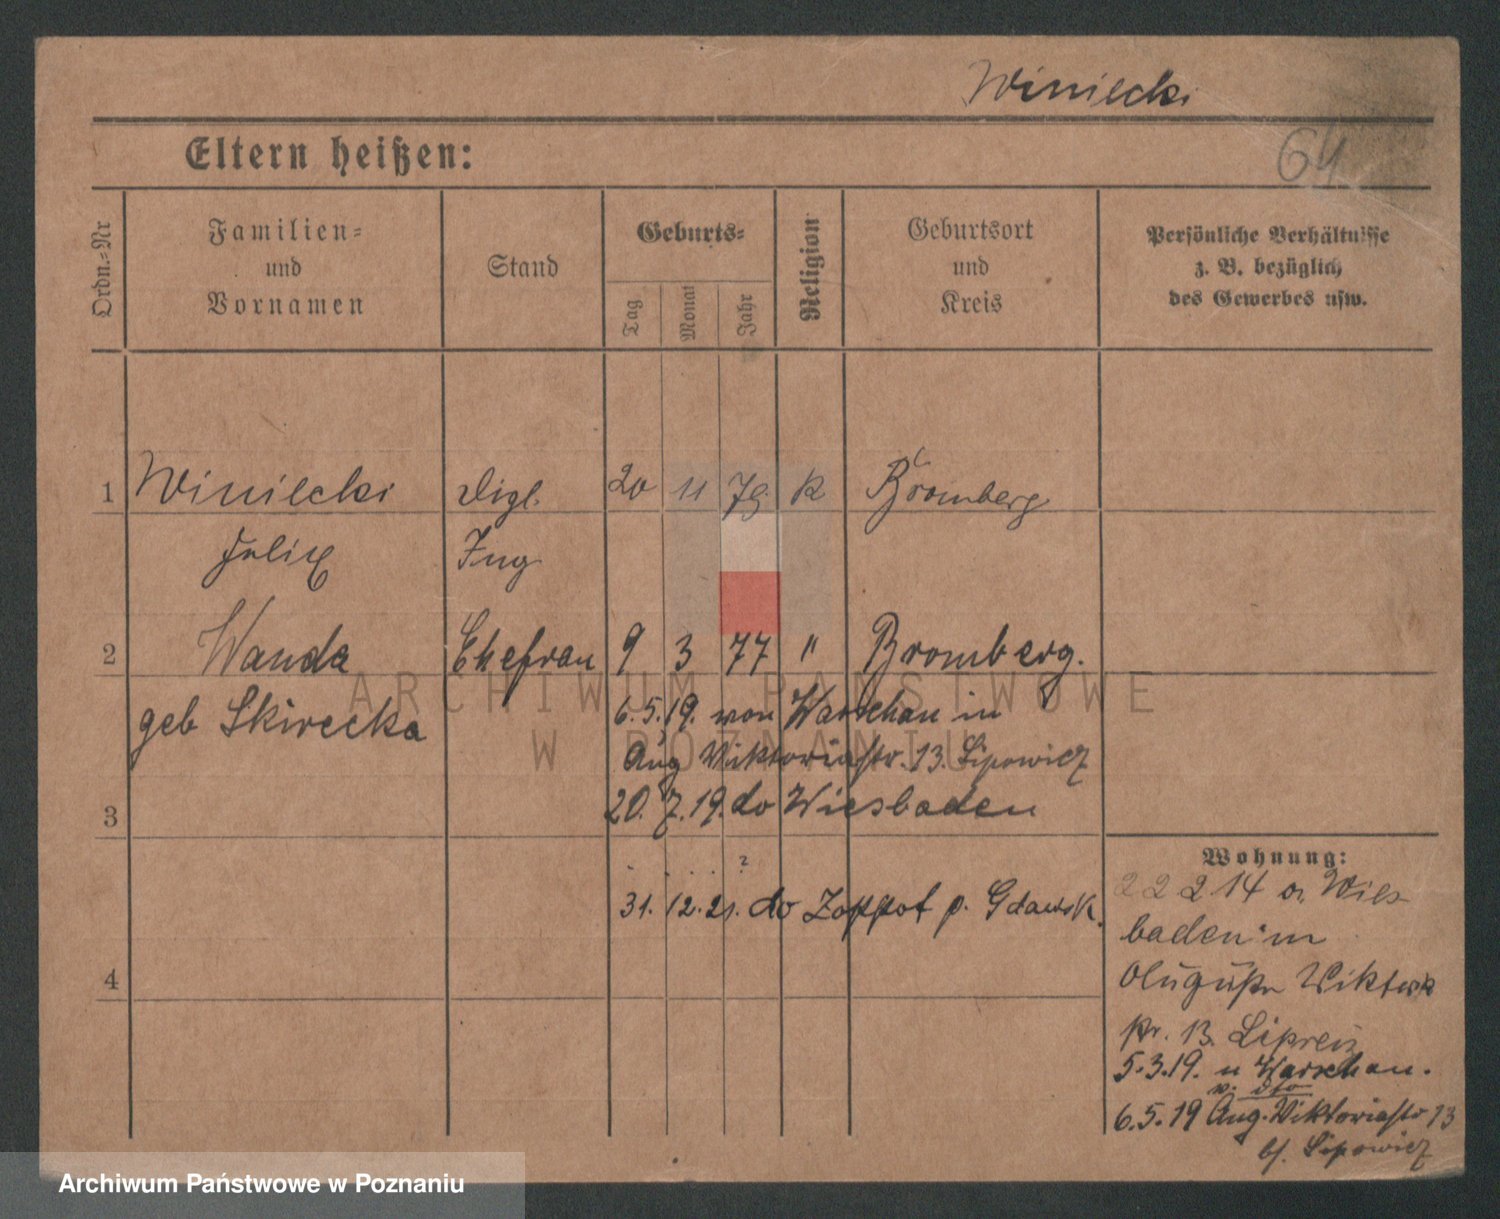 Winiecki
64
Eltern heißen:
Ordn.-Nr
Familien- und Vornamen
Stand
Geburts-
Tag
Monat
Jahr
Religion
Geburtsort und Kreis
Persönliche Verhältnisse
z. B. bezüglich
des Gewerbes usw.
1 Winiecki Digl. 20 11 79. K Bromberg
Felix Ing
2 Wanda Ehefrau 9 3 77 " Bromberg.
geb Skirecka
6.5.19. von Warschau in
Aug Viktoriastr. 13. Lipowicz
3 20.7.19. do Wiesbaden
?
31.12.21. do Zoppot p. Gdańsk.
4
Wohnung:
22 2 14 a. Wies
baden in
13.
5.3.19. n Warschau.
v. dto
6.5.19 Aug. Viktoriastr 13
bj. Lipowicz
ARCHIWUM PAŃSTWOWE
W POZNANIU
Archiwum Państwowe w Poznaniu